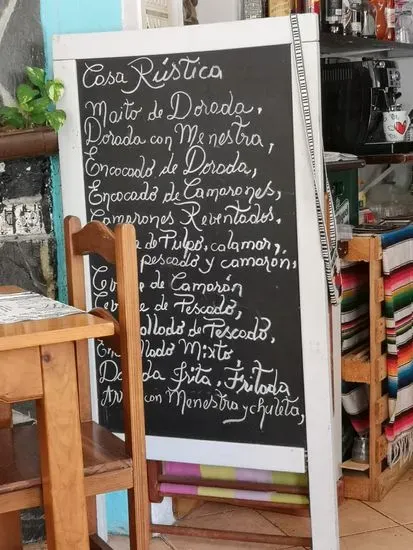 Casa Rústica
Maito de Dorada,
Dorada con Menestra,
Encocado de Dorada,
Encocado de Camarones,
Camarones Reventados,
de Pulpo, calamar,
pescado y camarón,
de Camarón
de Pescado,
de Pescado,
Mixto,
frita, Fritada
con Menestra y chuleta,